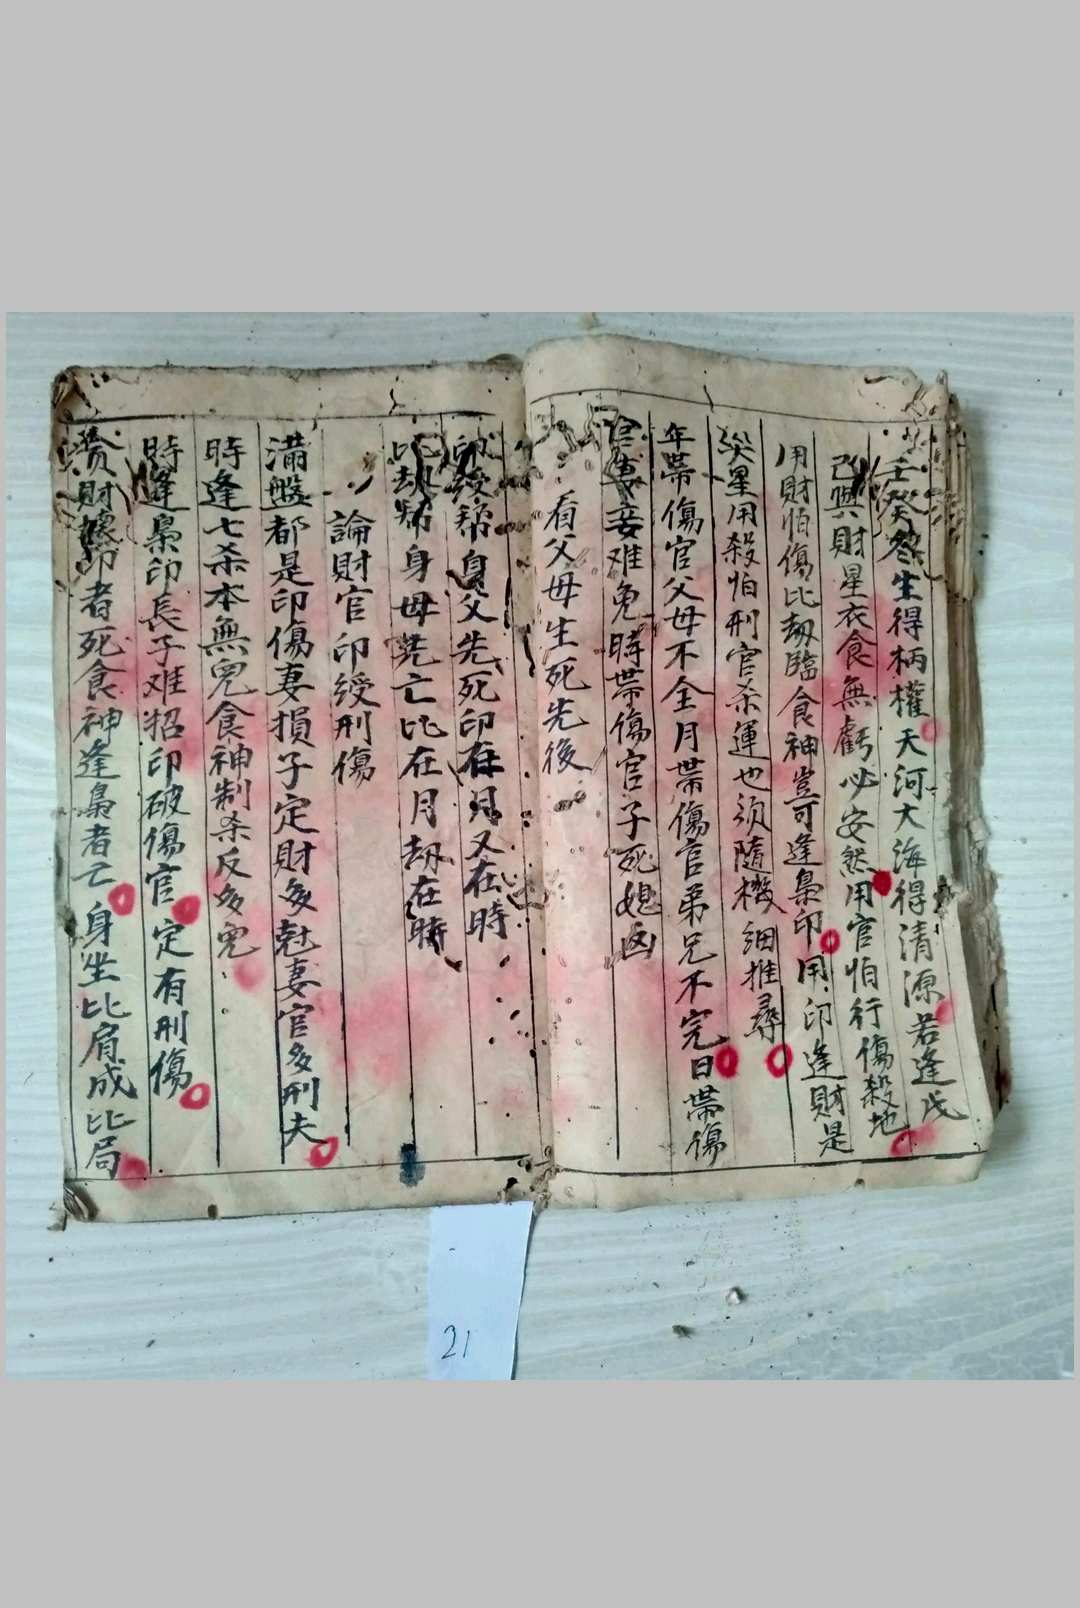 壬癸冬生得柄權天河大海得清源若逢戊
己與財星衣食無虧必安然用官怕行傷殺地
用財怕傷比劫臨食神豈可逢梟印用印逢財是
災星用殺怕刑官杀運也須隨機細推尋
年帶傷官父母不全月帶傷官弟兄不完日帶傷
官妻妾难免時帶傷官子死媳凶
看父母生死先後
印綬帮身父先死印在月又在時
比劫帮身母先亡比在月劫在時
論財官印綬刑傷
满盤都是印傷妻損子定財多尅妻官多刑夫
時逢七杀本無児食神制杀反多児
時逢梟印長子难招印破傷官定有刑傷
貪財壞印者死食神逢梟者亡身坐比肩成比局
21